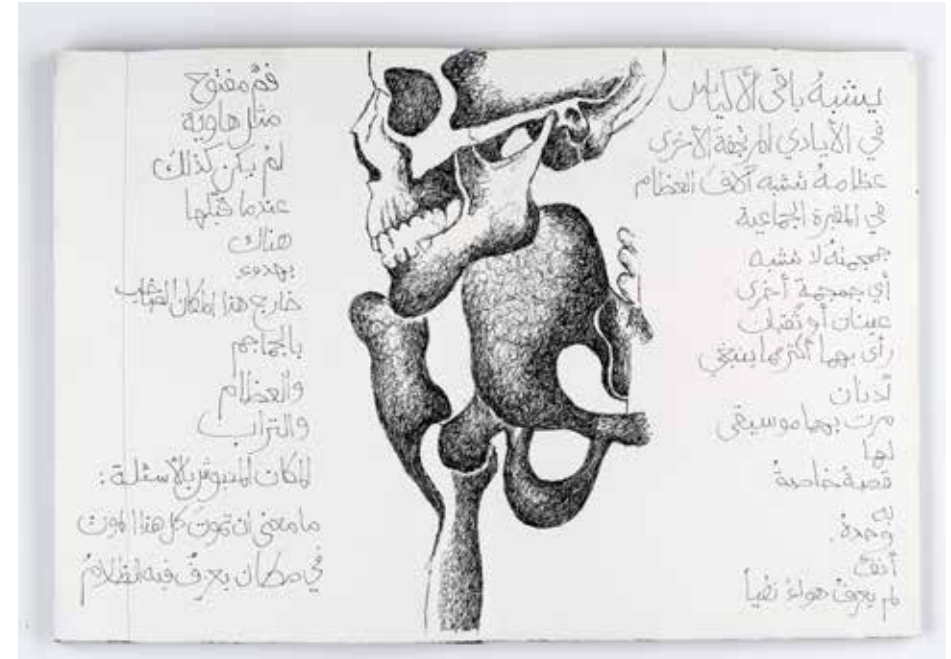 يشبهُ باقي الأكياس
في الأيادي المرتجفة الأخرى
عظامهُ تشبه آلاف العظام
في المقبرة الجماعية
جمجمتهُ لا تشبه
أي جمجمة أخرى
عينان أو ثقبان
رأى بهما أكثر مما ينبغي
أذنان
مرت بهما موسيقى
لها
قصة خاصة
به
وحدهُ.
أنفٌ
لم يعرف هواءً نقياً
فمٌ مفتوح
مثل هاوية
لم يكن كذلك
عندما قبّلها
هناك
بهدوء
خارج هذا المكان الصاخب
بالجماجم
والعظام
والتراب
المكان المنبوش بالأسئلة:
ما معنى ان تموتَ كل هذا الموت
في مكان يعزفُ فيه الظلامُ